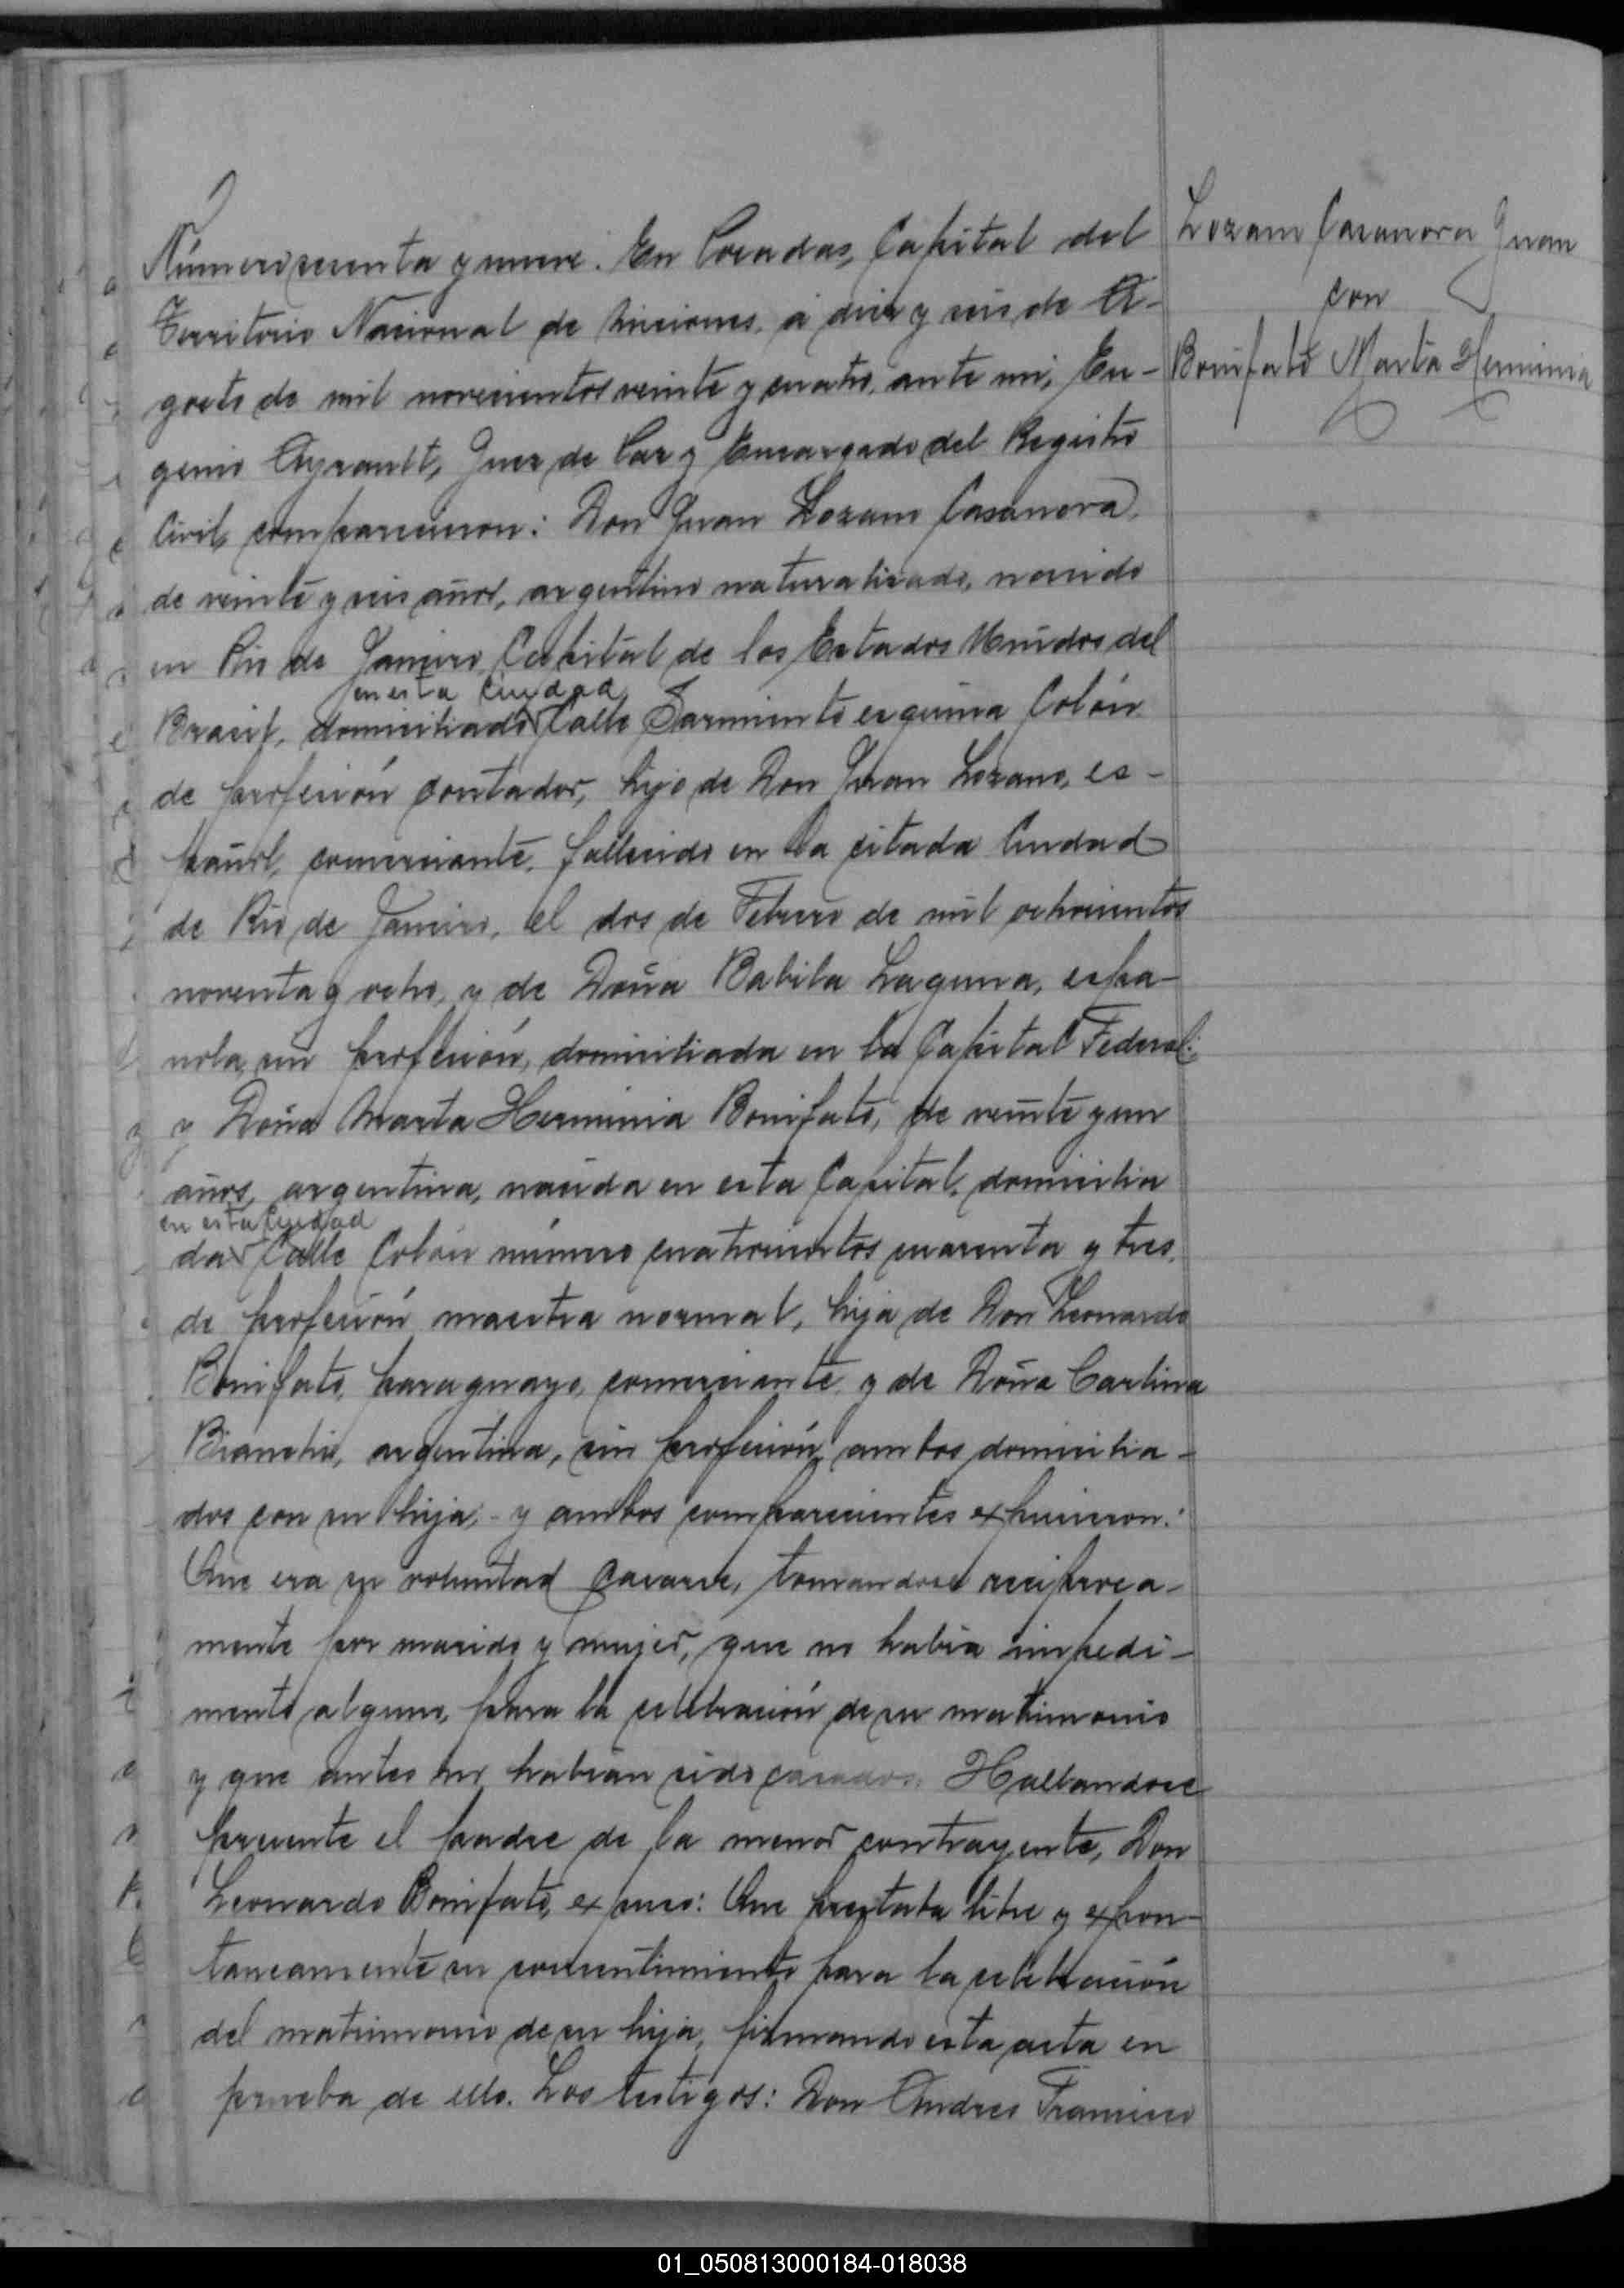 Número sesenta y nueve. En Posadas, Capital del
Territorio Nacional de Misiones, á diez y seis de A-
gosto de mil novecientos veinte y cuatro, ante mi, Eu-
genio Ayrault, Juez de Paz y Encargado del Registro
Civil, comparecieron: Don Juan Lozano Casanova,
de veinte y seis años, argentino naturalizado, nacido
en Rio de Janeiro, Capital de los Estados Unidos del
en esta Ciudad
Brasil, domiciliado Calle Sarmiento esquina Colón
de profesión contador, hijo de Don Juan Lozano, es-
pañol, comerciante, fallecido en la citada Ciudad
de Rio de Janeiro, el dos de Febrero de mil ochocientos
noventa y ocho, y de Doña Babila Laguna, espa-
ñola, sin profesión, domiciliada en la Capital Federal;
y Doña Marta Herminia Bonifato, de veinte y un
años, argentina, nacida en esta Capital, domicilia
en esta Ciudad
da Calle Colón número cuatrocientos cuarenta y tres,
de profesión maestra normal, hija de Don Leonardo
Bonifato, paraguayo, comerciante y de Doña Carlina
Bianchi, argentina, sin profesión, ambos domicilia-
dos con su hija; - y ambos comparecientes expusieron:
Que era su voluntad casarse, tomandose reciproca-
mente por marido y mujer, que no habia impedi-
mento alguno, para la celebración de su matrimonio
y que antes no habian sido casados. Hallandose
presente el padre de la menor contrayente, Don
Leonardo Bonifato, expuso: Que prestaba libre y expon-
taneamente su consentimiento para la celebración
del matrimonio de su hija, firmando esta acta en
prueba de ello. Los testigos: Don Andres Francisco
Lozano Casanova Juan
con
Bonifato Marta Herminia
01_050813000184-018038